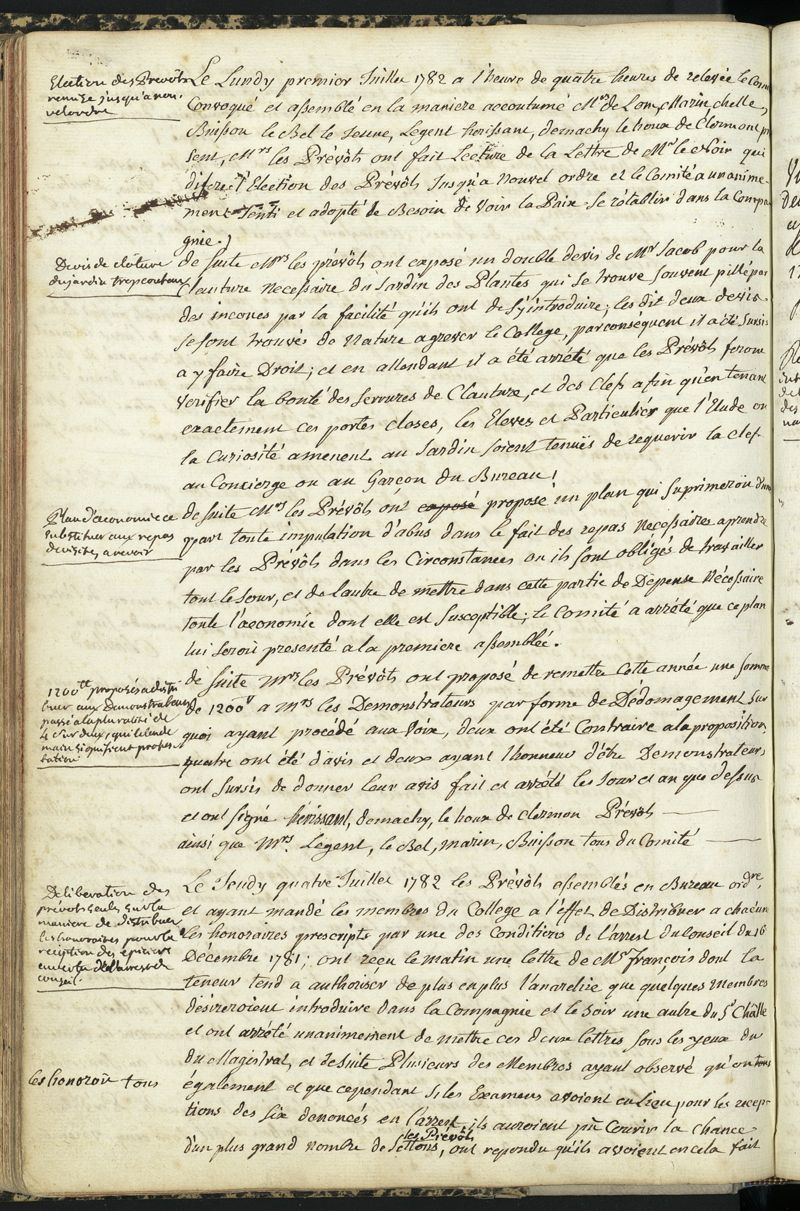 Election des Prevôts
remise jusqu'a nou-
vel ordre
Le Lundy premier Juillet 1782 a l'heure de quatre heures de relevée le Comité
Convoqué et assemblé en la maniere accoutumé Mrs de Lom, Marin, chelle,
Buisson le Bel le Jeune, Legent herissant, demachy le houx de Clermont
sent, Mrs les Prévôts ont fait Lecture de la Lettre de Mr le Noir qui
differe l'Election des Prévôts Jusqu'a Nouvel ordre et le Comité a unanime-
ment Senti et adopté le Besoin de Voir la Paix se rétablir dans la Compa
gnie.
Devis de cloture
du jardin trop couteux
de suite Mrs les prévôts ont exposé un double devis de Mr Jacob pour la
Clauture Necessaire du Jardin des Plantes qui se trouve souvent pillé par
des inconus par la facilité qu'ils ont de s'y introduire; les dit deux devis
se sont trouvés de Nature a grever le College, par conséquent il a été sursis
a y faire Droit; et en attendant il a été arrêté que les Prévôts feroient
verifier la bonté des serrures de Clauture, et des Clefs afin qu'en tenant
exactement ces portes closes, les Eleves et Particulier que l'Etude ou
la Curiosité amenent au Jardin soient tenuës de requerir la clef
au Concierge ou au Garçon du Bureau!
Plan d'oeconomie a
substituer aux repas
de visites, a revoir
de suite Mrs les Prévôts ont exposé proposé un plan qui suprimeroit d'une
part toute imputation d'abus dans le fait des repas Necessaires a prendre
par les Prévôts dans les Circonstances ou ils sont obligés de travailler
tout le Jour, et de l'autre de mettre dans cette partie de Dépense Nécessaire
toute l'oeconomie dont elle est susceptible; le Comité a arrêté que ce plan
lui seroit presenté a la premiere assemblée.
1200tt proposés a distri
buer aux Demonstrateurs
passé a la pluralité de
4 sur deux, qui le lende
main signifirent protes-
tation
de suite Mrs les Prévôts ont proposé de remettre Cette année une somme
de 1200tt a Mrs les Demonstrateurs par forme de Dédomagement sur
quoi ayant procédé aux Voix, deux ont été Contraire a la proposition,
quatre ont été d'avis et deux ayant l'honneur d'être Demonstrateurs
ont sursis de donner leur avis fait et arrêté le Jour et an que dessus
et ont signé herissant, demachy, le houx de clermon Prévôts
ainsi que Mrs. Legent, le Bel, marin, Buisson tous du Comité
Deliberation des
prévots seuls sur la
maniere de distribuer
les honoraires pour la
reception des épiciers
en vertu de l'arrest du
conseil.
Le Jeudy quatre Juillet 1782 les Prévôts assemblés en Bureau ordre,
et ayant mandé les membres du College a l'effet de Distribuer a chacun
les honoraires prescripts par une des Conditions de l'arrest du Conseil du 16
Décembre 1781; ont recu le matin une lettre de Mr françois dont la
teneur tend a authoriser de plus en plus l'anarchie que quelques Membres
désireroient introduire dans la Compagnie et le soir une autre du Sr Châlle
et ont arrêté unanimement de mettre ces deux lettres sous les yeux du
du Magistrat, et de suite Plusieurs des Membres ayant observé qu'on
les honoroit tous
également et que cependant si les Examens avoient eu lieu pour les recep-
tions des six denoncés en l'arrest, ils auroient pu Courir la chance
d'un plus grand nombre de Jettons, les Prévôts ont repondu qu'ils avoient en cela fait